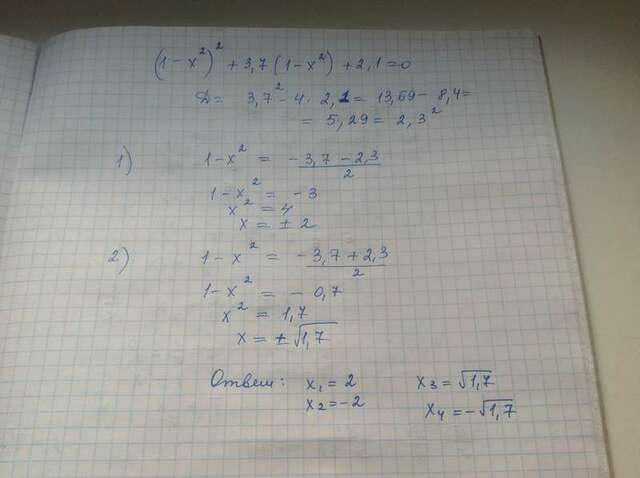 (1-x²)² + 3,7(1-x²) + 2,1 = 0
D = 3,7² - 4 · 2,1 = 13,69 - 8,4 =
= 5,29 = 2,3²
1) 1-x² = (-3,7-2,3)/2
1-x² = -3
x² = 4
x = ±2
2) 1-x² = (-3,7+2,3)/2
1-x² = -0,7
x² = 1,7
x = ±√1,7
Ответ: x₁ = 2 x₃ = √1,7
x₂ = -2 x₄ = -√1,7